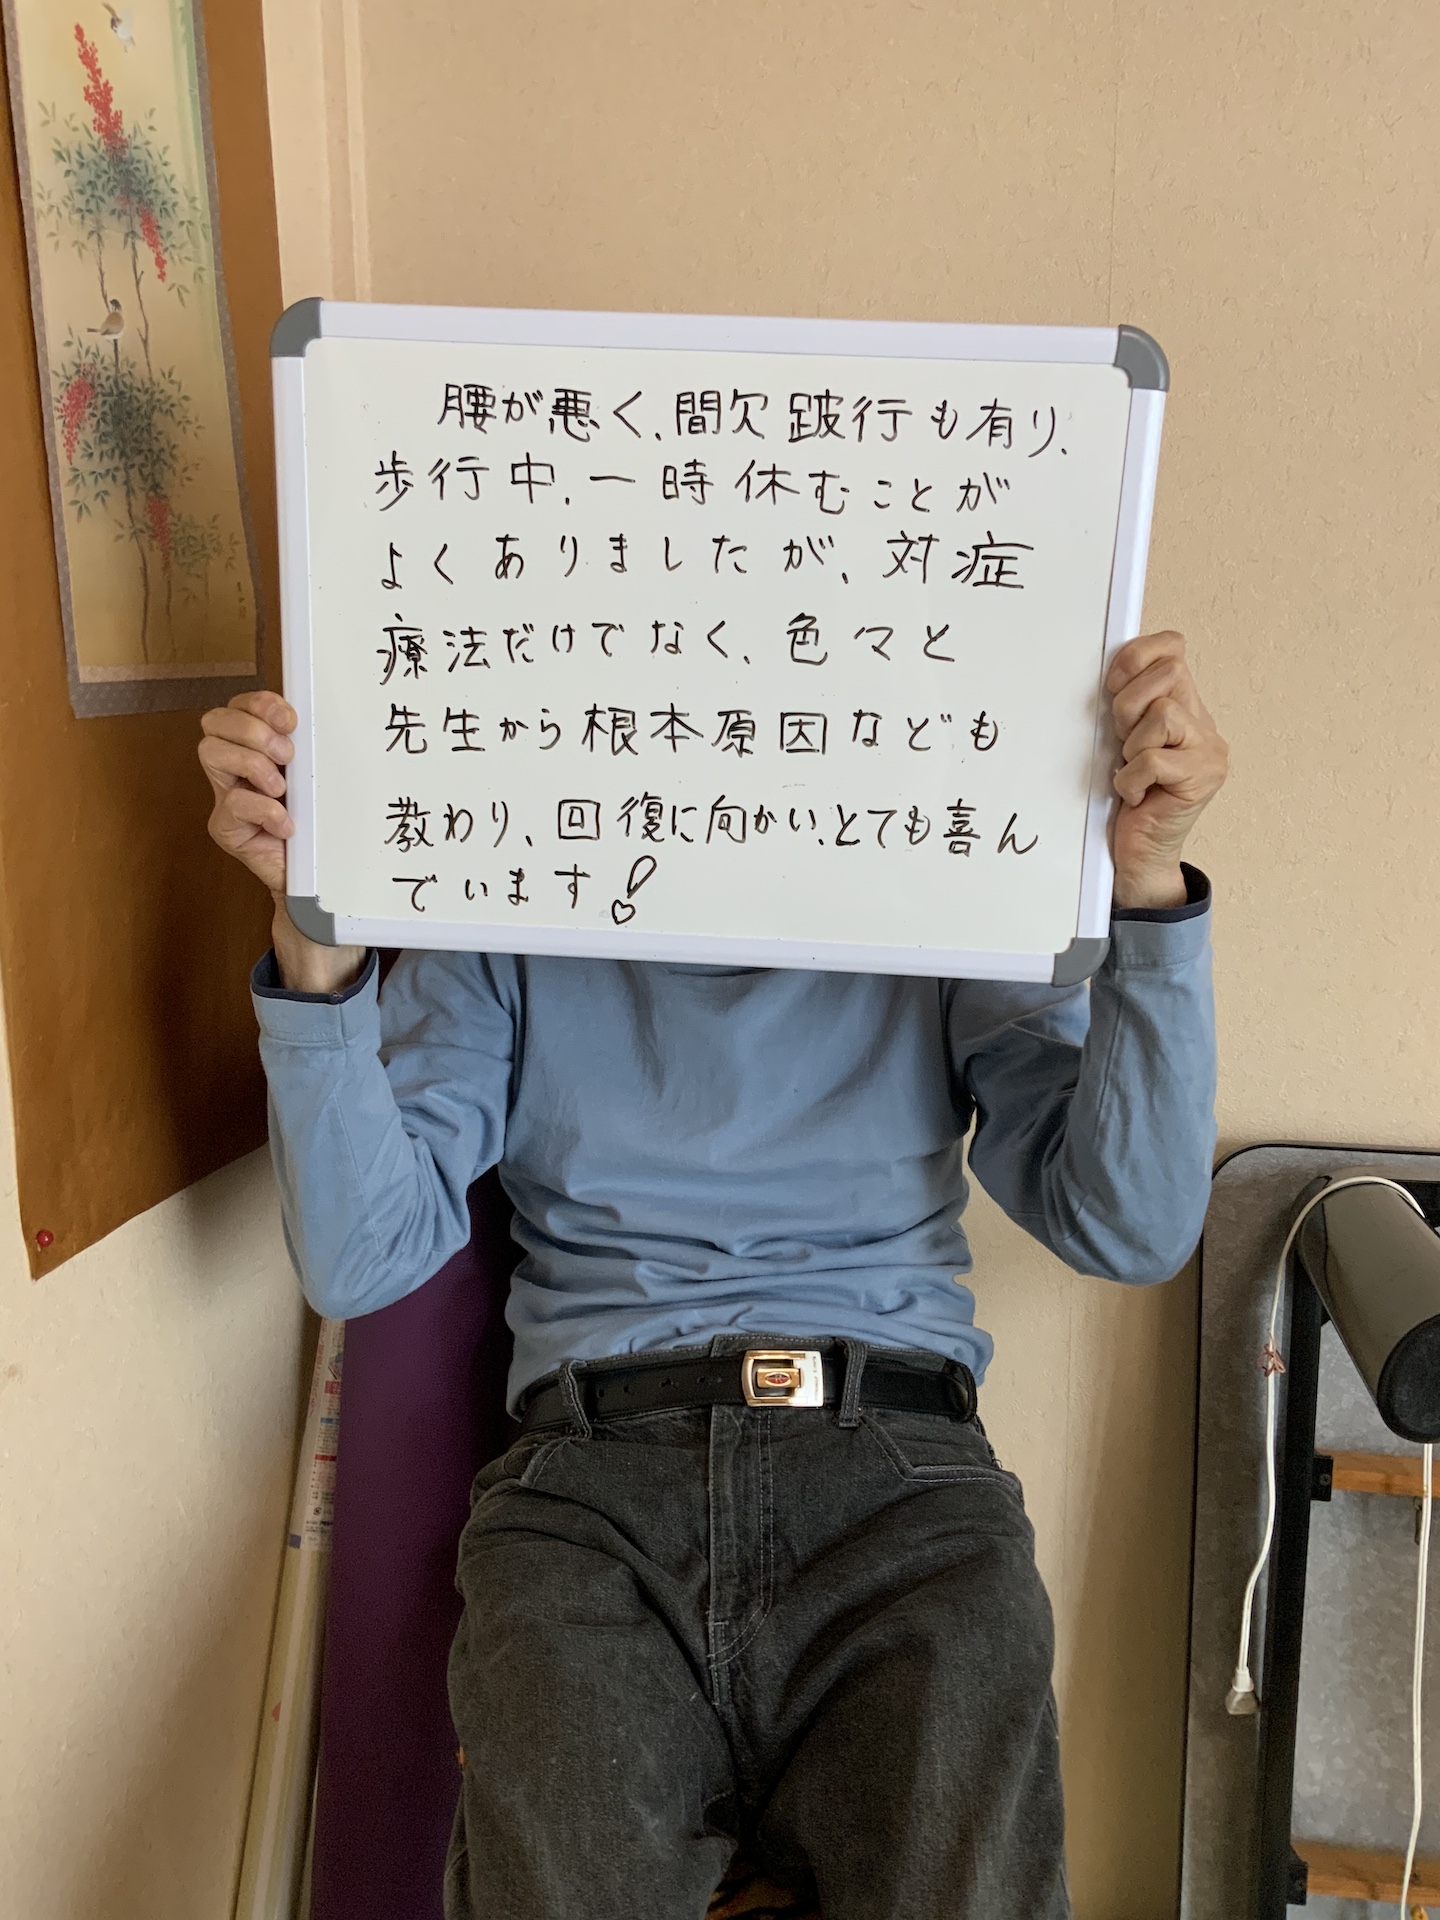 腰が悪く、間欠跛行も有り、
歩行中、一時休むことが
よくありましたが、対症
療法だけでなく、色々と
先生から根本原因なども
教わり、回復に向かい、とても喜ん
でいます!